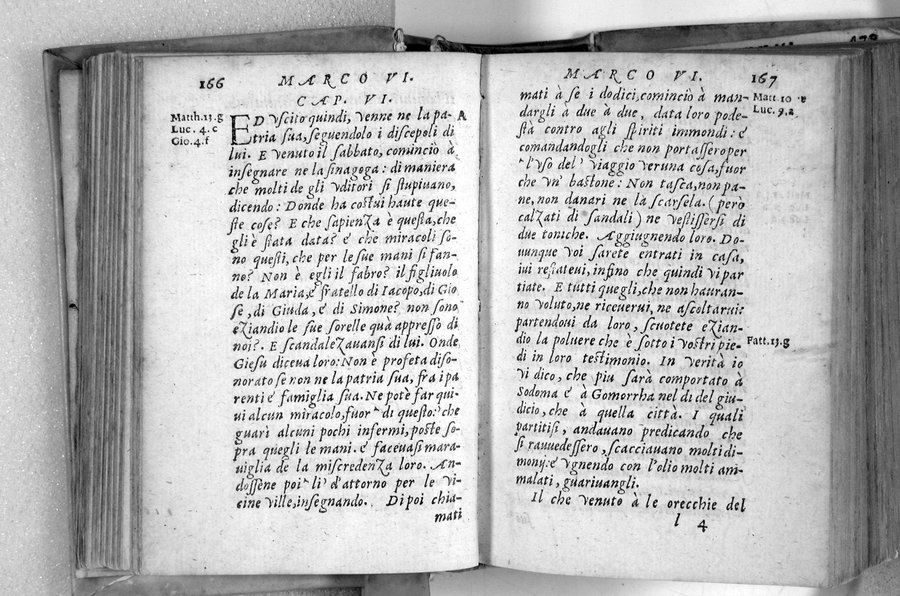 166
MARCO VI.
CAP. VI.
Matth.13.g
Luc. 4. c
Gio.4.f
A
ED vscito quindi, venne ne la pa-
tria sua, seguendolo i discepoli di
lui. E venuto il sabbato, comincìo à
insegnare ne la sinagoga: di maniera
che molti de gli vditori si stupiuano,
dicendo: Donde ha costui haute que-
ste cose? E che sapienza è questa, che
gli è stata data? e che miracoli so-
no questi, che per le sue mani si fan-
no? Non è egli il fabro? il figliuolo
de la Maria, e fratello di Iacopo, di Gio
se, di Giuda, e di Simone? non sono
eziandio le sue sorelle quà appresso di
noi?. E scandalezauansi di lui. Onde
Giesu diceua loro: Non è profeta diso-
norato se non ne la patria sua, fra i pa
renti e famiglia sua. Ne potè far qui
ui alcun miracolo, fuor di questo: che
guarì alcuni pochi infermi, poste so-
pra quegli le mani. e faceuasi mara-
uiglia de la miscredenza loro. An-
dossene poi li d'attorno per le vi-
cine ville, insegnando. Di poi chia-
mati
MARCO VI.
167
Matt. 10
Luc. 9.a
mati à se i dodici, cominciò à man-
dargli à due à due, data loro pode-
stà contro agli spiriti immondi: e
comandandogli che non portasser per
l'vso del viaggio veruna cosa, fuor
che vn' bastone: Non tasca, non pa-
ne, non danari ne la scarsela. (pero
calzati di sandali) ne vestissersi di
due toniche. Aggiugnendo loro. Do-
uunque voi sarete entrati in casa,
iui restateui, infino che quindi vi par
tiate. E tutti quegli, che non hauran-
no voluto, ne riceuerui, ne ascoltarui:
partendoui da loro, scuotete ezian-
dio la poluere che è sotto i vostri pie-
di in loro testimonio. In verità io
vi dico, che piu sarà comportato à
Sodoma e à Gomorrha nel dì del giu-
dicio, che à quella città. I quali
partitisi, andauano predicando che
si rauuedessero, scacciauano molti di-
monÿ: e vgnendo con l'olio molti am-
malati, guariuangli.
Il che venuto à le orecchie del
Fatt.13.g
l 4